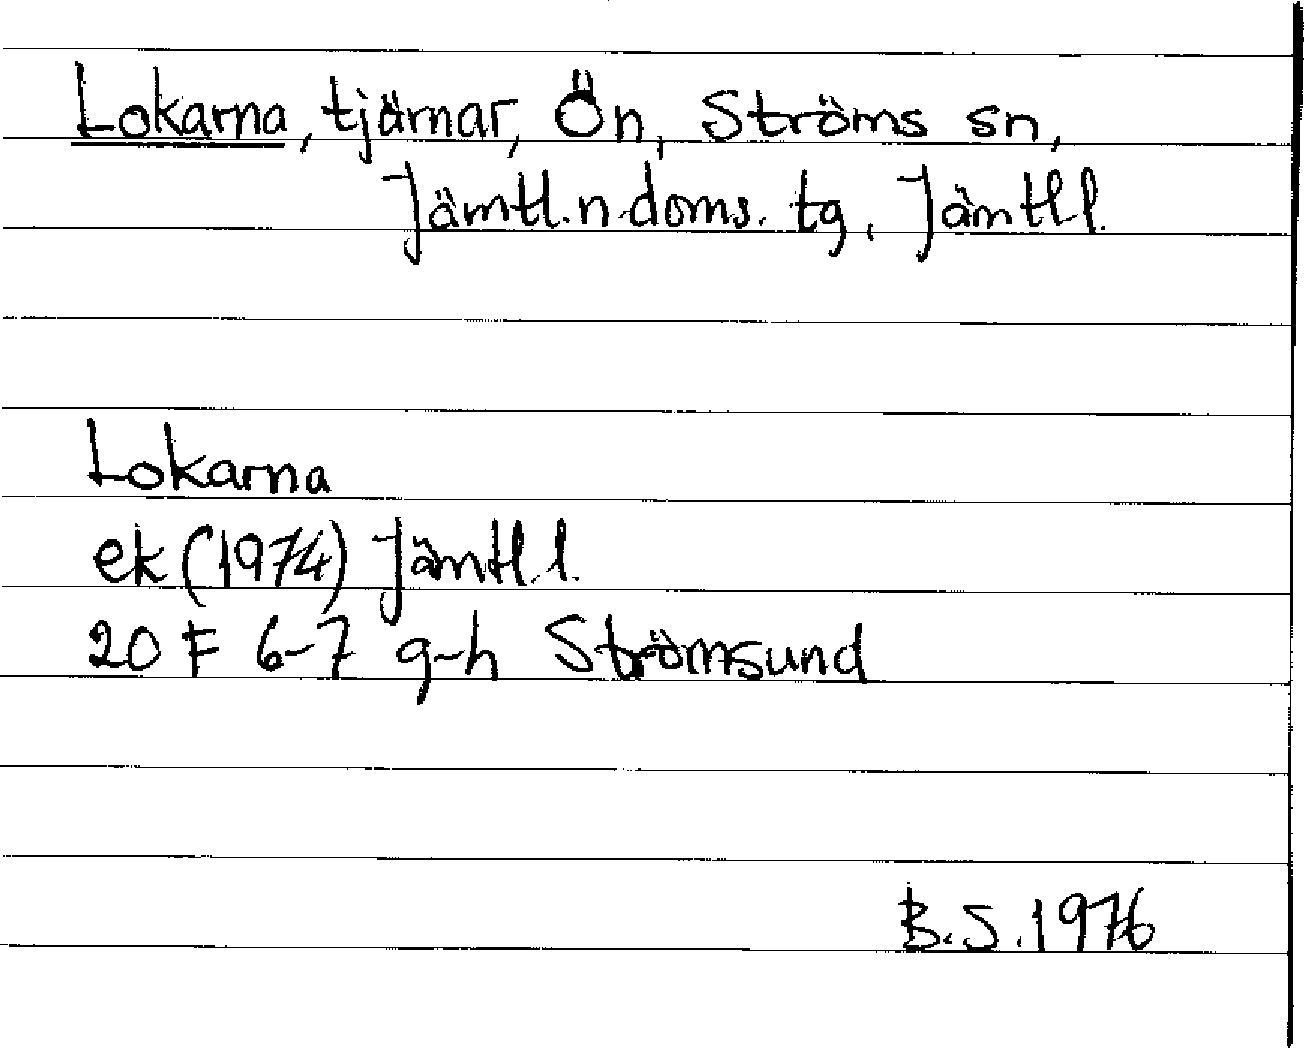 Lokarna, tjärnar, Ön, Ströms sn,
Jämtl.n.doms. tg, Jämtl l.
Lokarna
ek (1974) Jämtl.l.
20 F 6-7 g-h Strömsund
B.S. 1976